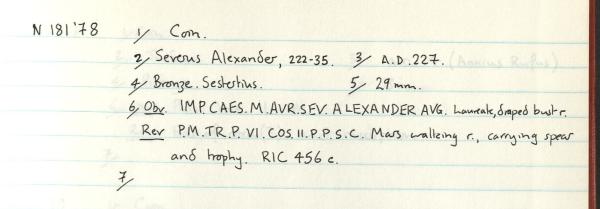 N 181'78 1/ Coin.
2/ Severus Alexander, 222-35. 3/ A.D. 227. (Annius Rufus)
4/ Bronze. Sestertius. 5/ 29mm.
6/ Obv. IMP.CAES.M.AVR.SEV.ALEXANDER AVG. Laureate, draped bust r.
Rev P.M.TR.P.VI.COS.II.P.P.S.C. Mars walking r., carrying spear
and trophy. RIC 456 c.
7/